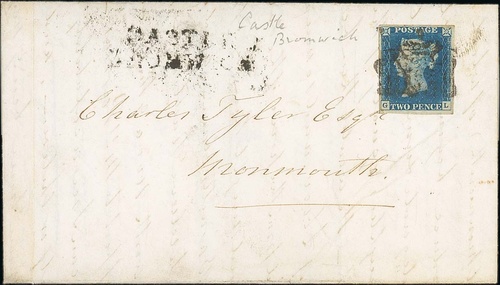 CASTLE
BROMWICH
Castle
Bromwich
POSTAGE
TWO PENCE
G L
Charles Tyler Esqr
Monmouth.